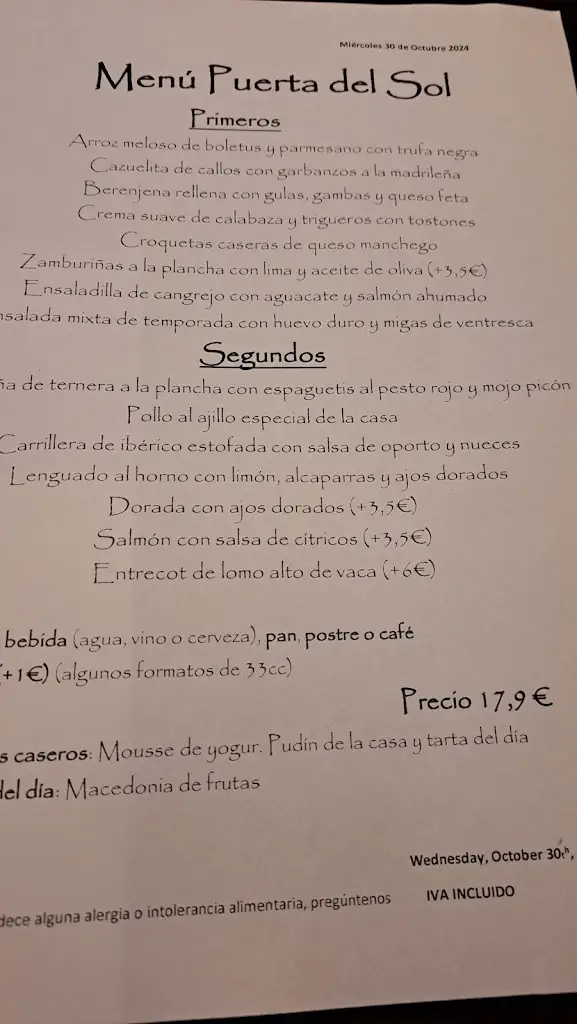 Miércoles 30 de Octubre 2024
Menú Puerta del Sol
Primeros
Arroz meloso de boletus y parmesano con trufa negra
Cazuelita de callos con garbanzos a la madrileña
Berenjena rellena con gulas, gambas y queso feta
Crema suave de calabaza y trigueros con tostones
Croquetas caseras de queso manchego
Zamburiñas a la plancha con lima y aceite de oliva (+3,5€)
Ensaladilla de cangrejo con aguacate y salmón ahumado
nsalada mixta de temporada con huevo duro y migas de ventresca
Segundos
ña de ternera a la plancha con espaguetis al pesto rojo y mojo picón
Pollo al ajillo especial de la casa
Carrillera de ibérico estofada con salsa de oporto y nueces
Lenguado al horno con limón, alcaparras y ajos dorados
Dorada con ajos dorados (+3,5€)
Salmón con salsa de cítricos (+3,5€)
Entrecot de lomo alto de vaca (+6€)
bebida (agua, vino o cerveza), pan, postre o café
(+1€) (algunos formatos de 33cc)
Precio 17,9 €
s caseros: Mousse de yogur. Pudin de la casa y tarta del día
del día: Macedonia de frutas
Wednesday, October 30th,
dece alguna alergia o intolerancia alimentaria, pregúntenos
IVA INCLUIDO